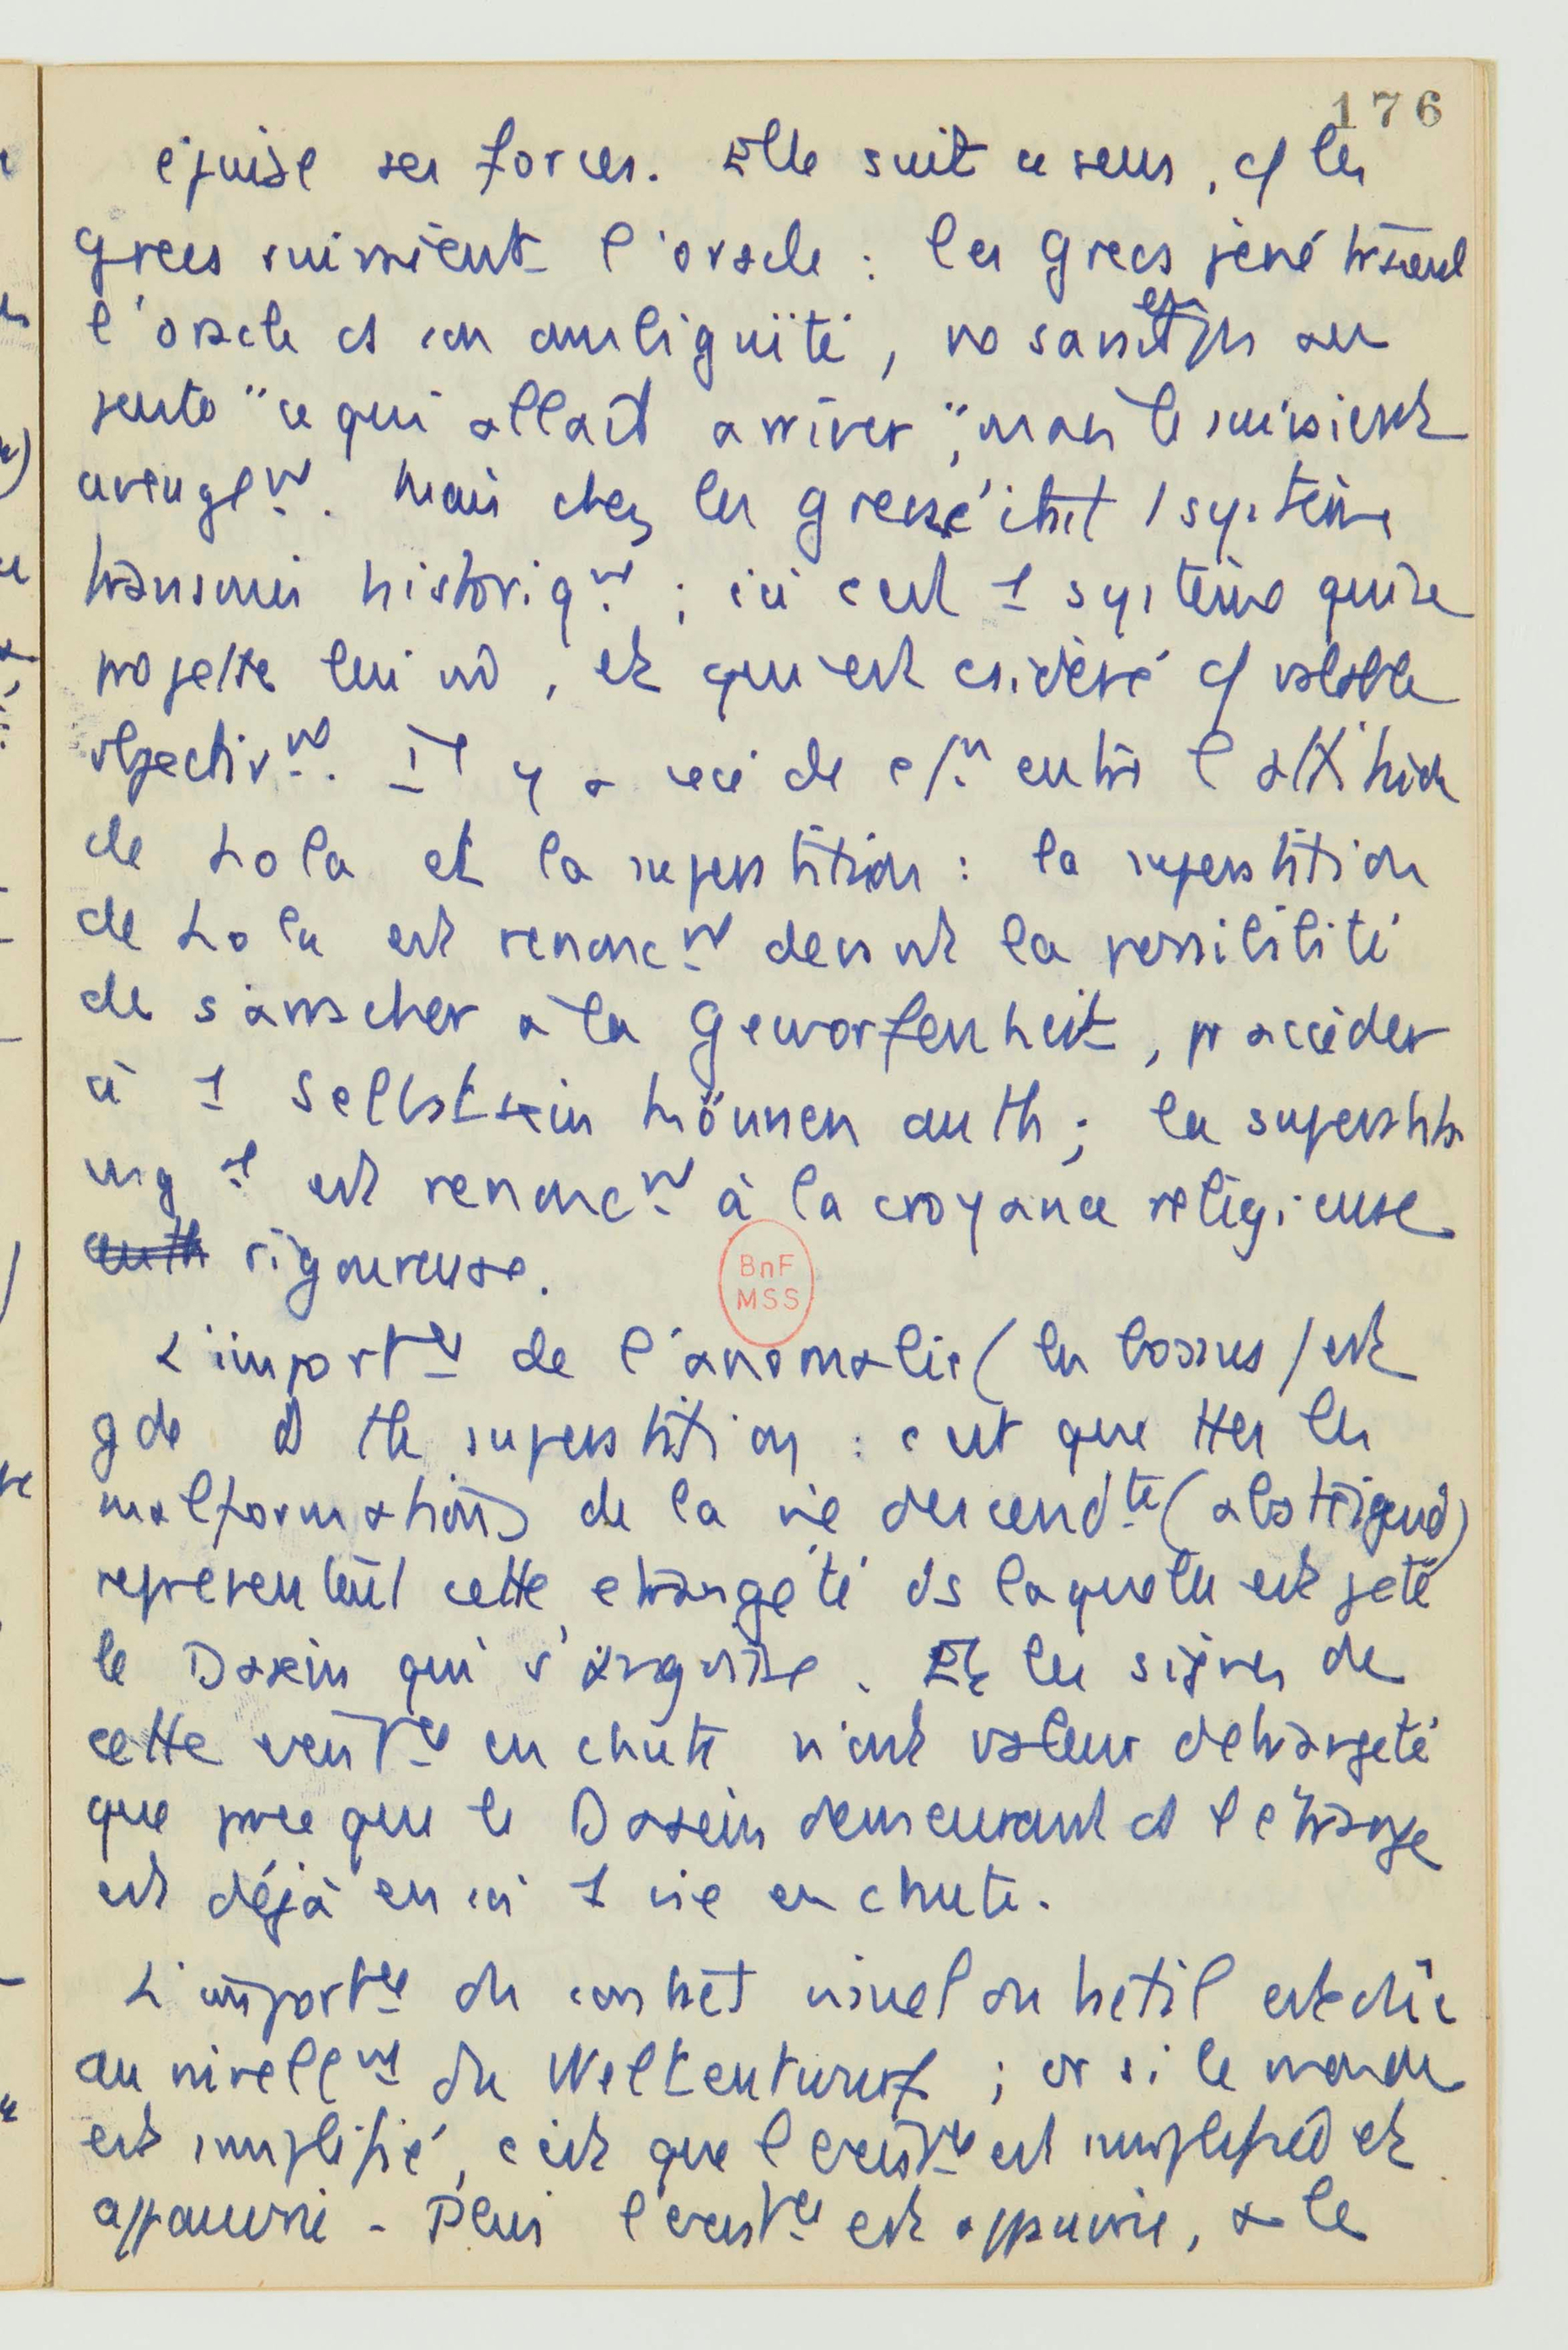 176
épuise ses forces. Elle suit ce sens, c/ les
grecs suivaient l'oracle : les Grecs pénétraient
l'oracle ds son ambiguïté, no savait pas au
juste "ce qui allait arriver", mais le suivaient
aveuglt. Mais chez les grecs c'était 1 système
transmis historiqt ; ici c'est 1 système qui se
projette lui m̂, et qui est csidéré c/ valable
objectivt. Il y a ceci de c/n entre l'attitude
de Lola et la superstition : la superstition
de Lola est renonct devant la possibilité
de s'arracher à la Geworfenheit, pr accéder
à 1 Selbstsein können auth ; la superstition
est renonct à la croyance religieuse
auth rigoureuse.
BnF
MSS
L'importce de l'anomalie (les bossus) est
gde ds tte superstition : c'est que ttes les
malformations de la vie descendte (absteigend)
représentent cette étrangeté ds laquelle est jeté
le Dasein qui s'angoisse. Et les signes de
cette existce en chute n'ont valeur d'étrangeté
que parce que le Dasein demeurant ds l'étrange
est déjà en soi 1 vie en chute.
L'importce du contact visuel ou tactil est dûe
au nivellt du Weltentwurf ; or si le monde
est simplifié, c'est que l'existce est simplifiée et
appauvrie - Plus l'existce est appauvrie, + le